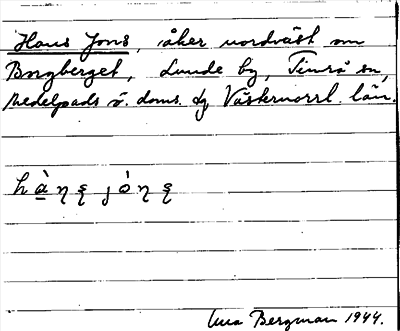 Hans Jons, åker nordväst om
Borgberget, Lunde by, Timrå sn,
Medelpads ö. doms. dg Västernorrl. län.
Bergman 1944.